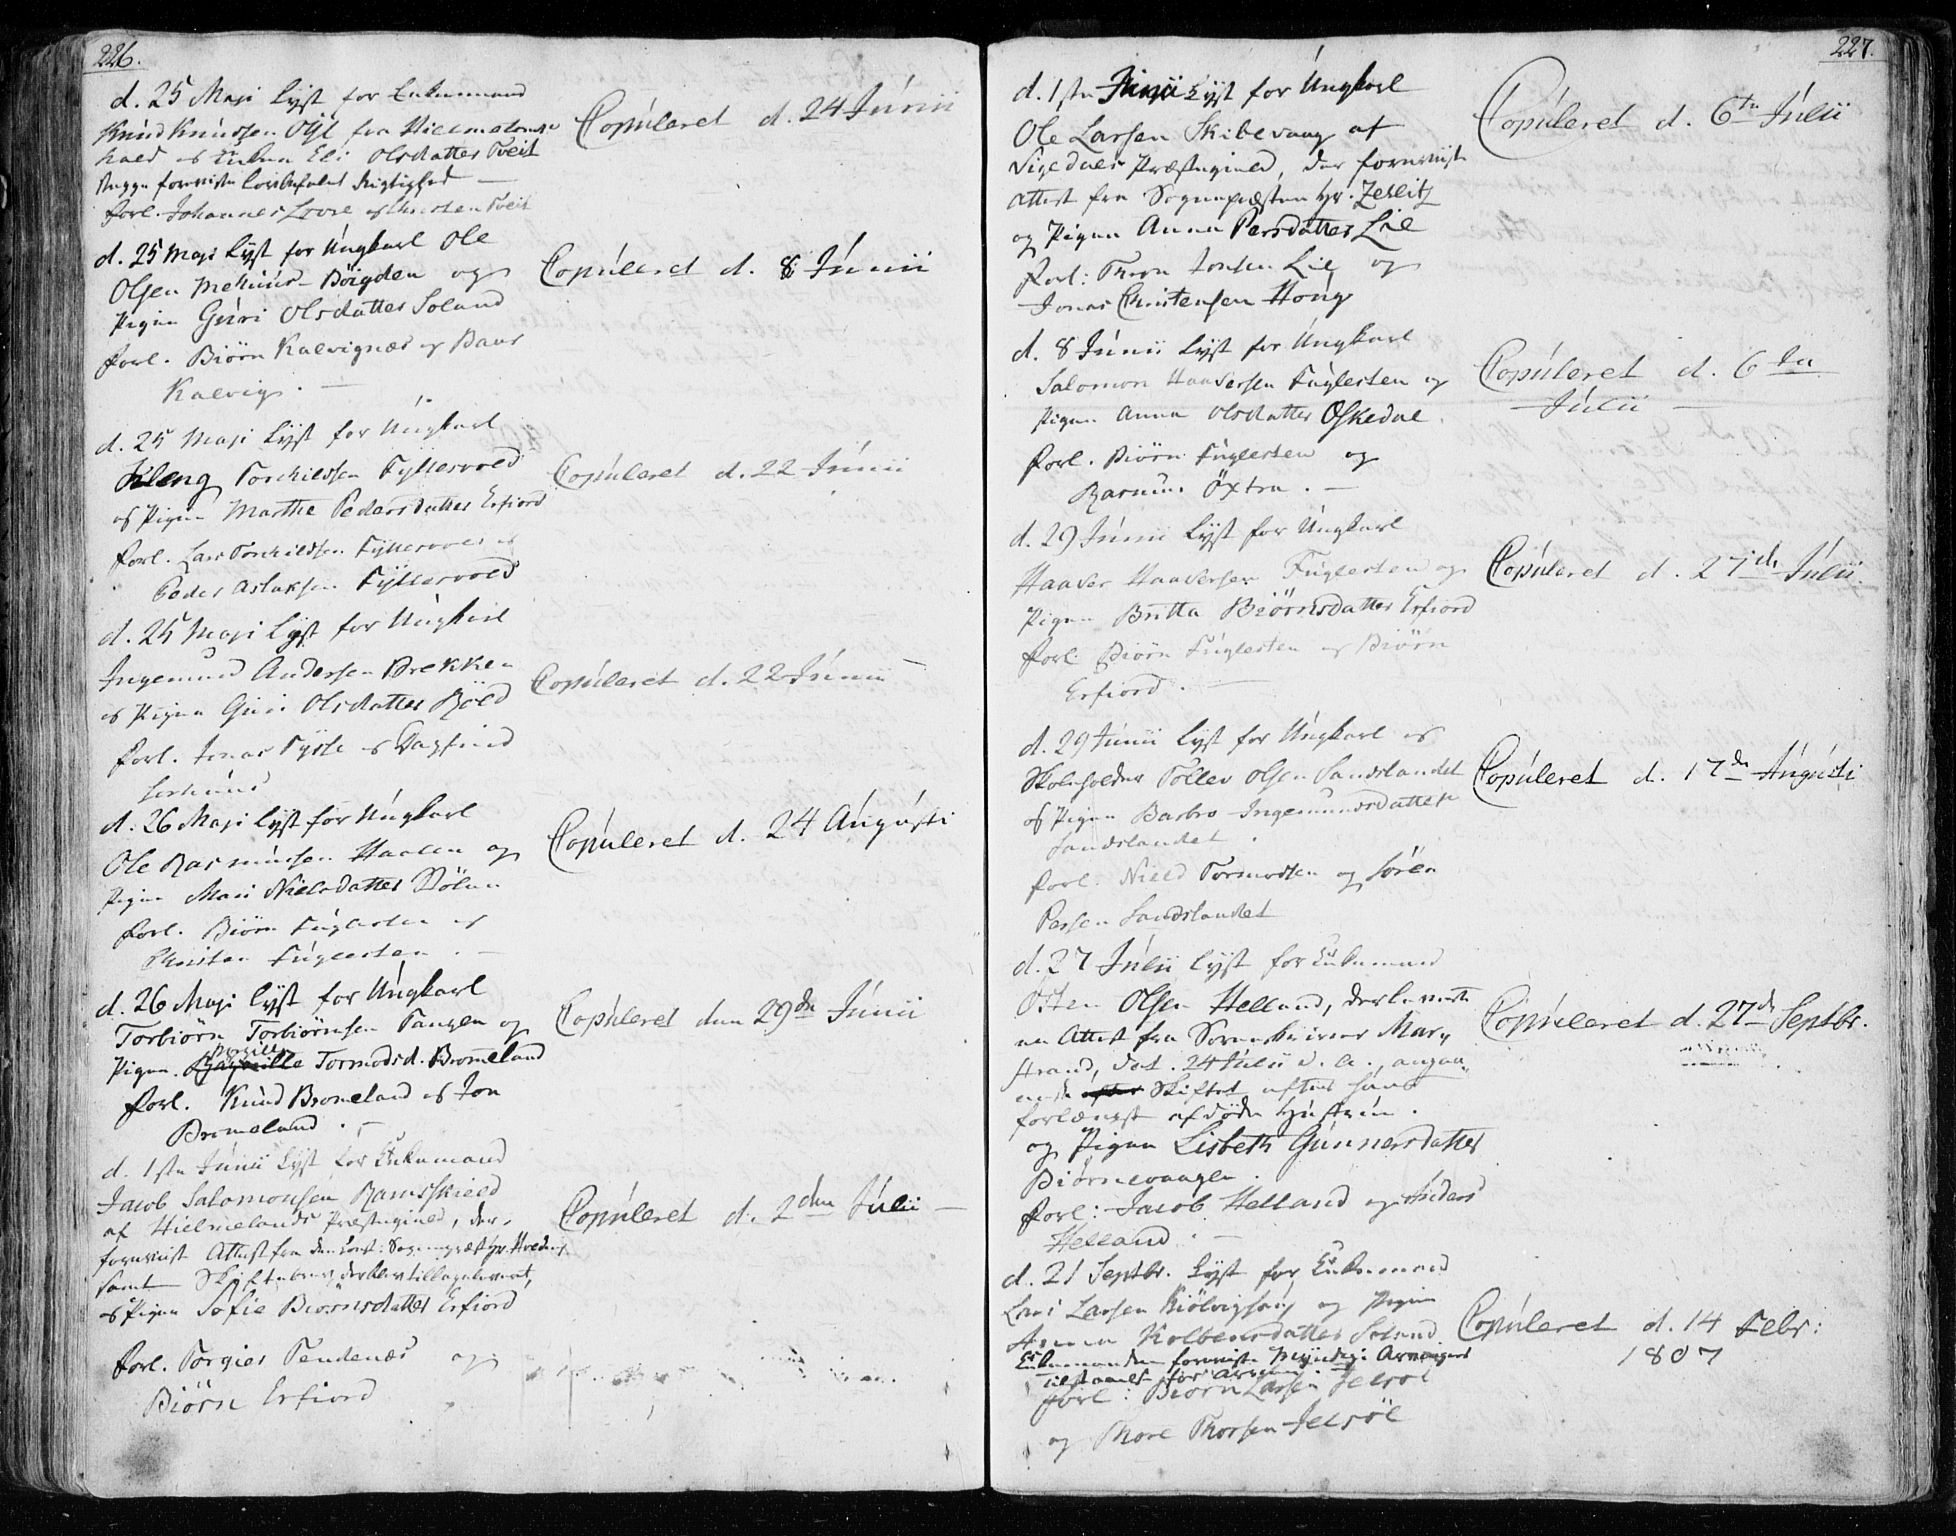 226.
d. 25 Maji Lyst for Enkemand
Knud Knudsen Øje fra Hielmelands
kald og Enken Eli Olsdatter Tveit
begge forviste lovbefalet Rigtighed
forl. Johannes Lovre og Christen Tveit
Copuleret d. 24 Junii
d. 25 Maji Lyst for Ungkarl Ole
Olsen Mehuus-Böigden og
Pigen Guri Olsdatter Soland
forl. Biörn Kalvignæs og Baar
Kalvig.
Copuleret d. 8 Junii
d. 25 Maji Lyst for Ungkarl
Kleng Torkildsen Tyttervold
og Pigen Marthe Pedersdatter Erfiord
forl. Lars Torkildsen Tyttervold og
Peder Aslaksen Tyttervold
Copuleret d. 22 Junii
d. 25 Maji Lyst for Ungkarl
Ingemund Andersen Brekken
og Pigen Guri Olsdatter
forl. Jonas og Dagfind
Copuleret d. 22 Junii
d. 26 Maji Lyst for Ungkarl
Ole Rasmussen Haalen og
Pigen Mari Nielsdatter Stølen
forl. Biörn Fuglesten og
Christen Fuglesten.
Copuleret d. 24 Augusti
d. 26 Maji Lyst for Ungkarl
Torbiörn Torbiörnsen Tangen og
Pigen Tormodsd. Bromeland
forl. Knud Bromeland og Jon
Bromeland.
Copuleret den 29de Junii
d. 1ste Junii Lyst for Enkemand
Jacob Salomonsen Ramsskield
af Hielmelands Præstegield, der
foreviist Attest fra den Const: Sognepræst hr. Hveding
samt Skiftebrev, der blev tilbageleveret,
og Pigen Sofie Biörnsdatter Erfiord
forl. Torgier Tendenæs og
Biörn Erfiord
Copuleret d. 2den Julii
227.
d. 1ste Junii Lyst for Ungkarl
Ole Larsen Skibevaag af
Præstegield, der foreviiste
Attest fra Sognepræsten hr. Zeslitz
og Pigen Anna Persdatter Lie
forl: Thron Jonsen Lie og
Jonas Christensen Houg
Copuleret d. 6te Julii
d. 8 Junii Lyst for Ungkarl
Salomon Haaversen Fuglesten og
Pigen Anna Olsdatter Øskedal.
forl. Biörn Fuglesten og
Rasmus Öxtra.
Copuleret d. 6te
Julii
d. 29 Junii Lyst for Ungkarl
Haaver Haaversen Fuglesten og
Pigen Britta Biörnsdatter Erfiord
forl. Biörn Fuglesten og Biörn
Erfiord.
Copuleret d. 27de Julii
d. 29 Junii Lyst for Ungkarl og
Skoleholder Tollev Olsen Sandslandet
og Pigen Barbro Ingemunsdatter
Sandslandet.
forl. Nield Tormodsen og Sören
Persen Sandslandet
Copuleret d. 17de Augusti
d. 27 Julii Lyst for Enkemand
Östen Olsen Helland, der leverte
en Attest fra Sorenskriver Mary
Strand, dat. 24 Julii d. A., angaa
ende Skiftet efter hans
forlængst afdøde Hustrue.
og Pigen Lisbeth Gunnersdatter
Biörnevaagen.
forl: Jacob Helland og Anders
Helland.
Copuleret d. 27de Septbr.
d. 21 Septbr. Lyst for Enkemand
Lars Larsen og Pigen
Anna Kolbensdatter Soland.
Enkemanden foreviste Myndige Arvingers
Tilstaaelse for Arven
forl: Biörn Larsen Jelsöe
og Thore Thorsen Jelsöe
Copuleret d. 14 Febr:
1807